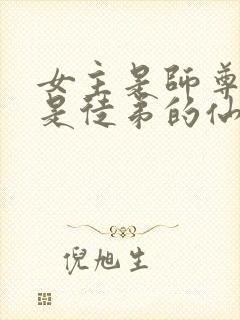 女主是師尊
是徒弟的仙
倪旭生